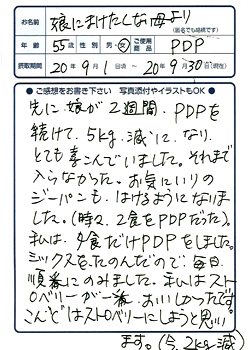 お名前 娘にまけたしな母より
(匿名でも結構です)
年齢 55歳 性別 男・女 ご使用商品 PDP
摂取期間 20年9月1日頃 ～ 20年9月30日(現在)
●ご感想をお書き下さい 写真添付やイラストもOK●
先に娘が2週間、PDPを
続けて、5kg 減に なり、
とても喜こんでいました。それまで
入らなかった。お気にいりの
ジーパンも、はけるようになりま
した。(時々、2食をPDPだった)。
私は、夕食だけPDPをしました。
ミックスをたのんだので、毎日
順番にのみました。私はスト
ロベリーが一番、おいしかったです。
こんどはストロベリーにしようと思い
ます。(今、2kg減)